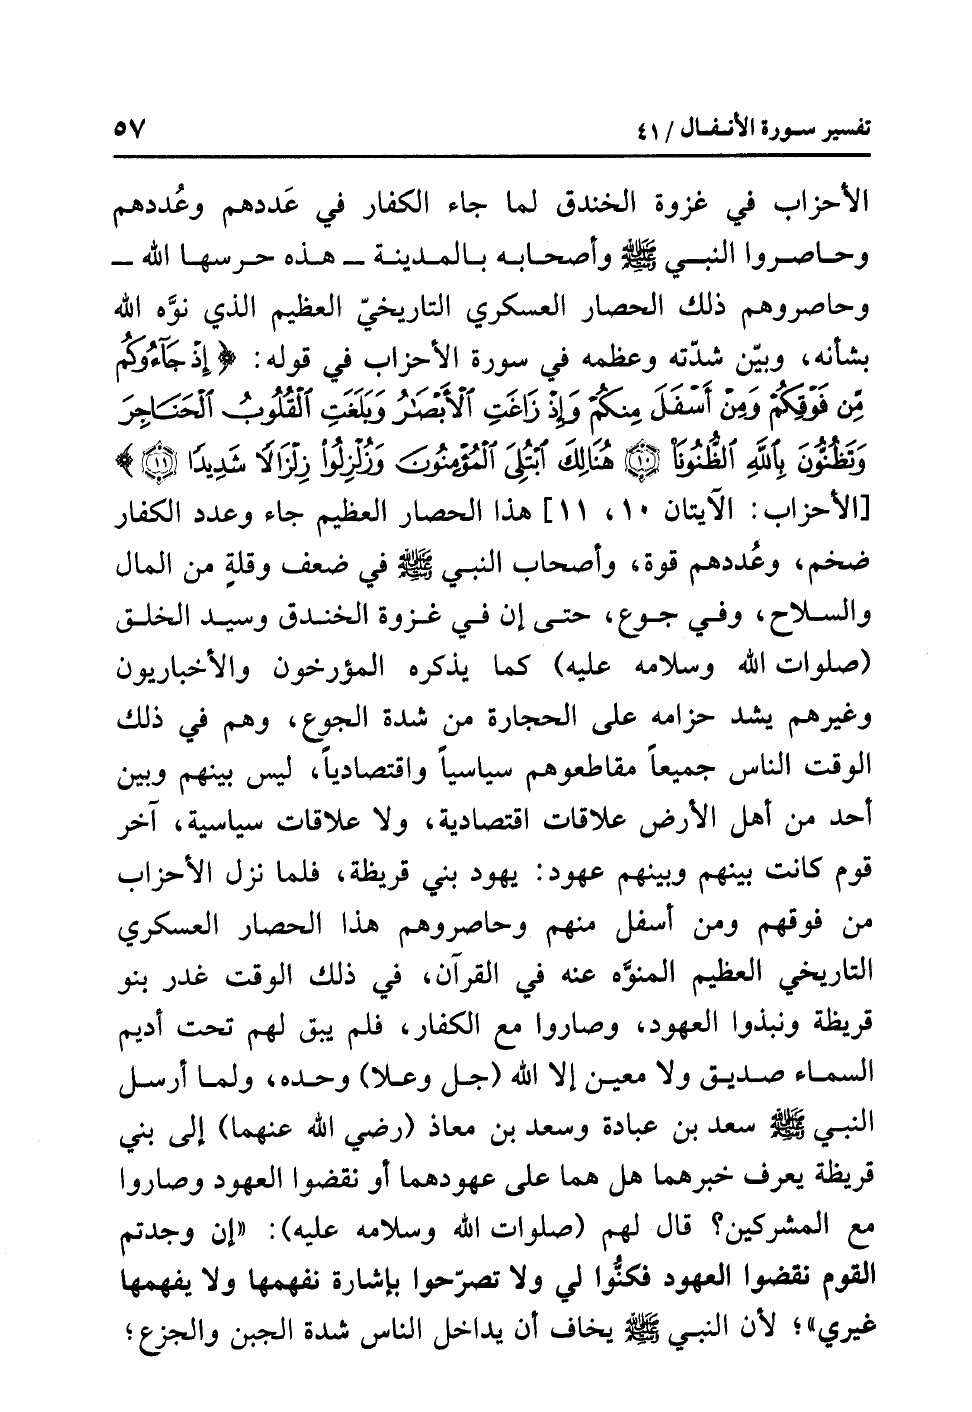 تفسير سورة الأنفال / ٤١ ٥٧
الأحزاب في غزوة الخندق لما جاء الكفار في عَددهم وعُددهم
وحاصروا النبي ﷺ وأصحابه بالمدينة ـ هذه حرسها الله ـ
وحاصروهم ذلك الحصار العسكري التاريخيّ العظيم الذي نوَّه الله
بشأنه، وبيّن شدّته وعظمه في سورة الأحزاب في قوله: ﴿ إِذْ جَآءُوكُم
مِّن فَوْقِكُمْ وَمِنْ أَسْفَلَ مِنكُمْ وَإِذْ زَاغَتِ ٱلْأَبْصَـٰرُ وَبَلَغَتِ ٱلْقُلُوبُ ٱلْحَنَاجِرَ
وَتَظُنُّونَ بِٱللَّهِ ٱلظُّنُونَا۠ ⁠(١٠) هُنَالِكَ ٱبْتُلِىَ ٱلْمُؤْمِنُونَ وَزُلْزِلُوا۟ زِلْزَالًا شَدِيدًا (١١) ﴾
[الأحزاب: الآيتان ١٠، ١١] هذا الحصار العظيم جاء وعدد الكفار
ضخم، وعُددهم قوة، وأصحاب النبي ﷺ في ضعف وقلةٍ من المال
والسلاح، وفي جوع، حتى إن في غزوة الخندق وسيد الخلق
(صلوات الله وسلامه عليه) كما يذكره المؤرخون والأخباريون
وغيرهم يشد حزامه على الحجارة من شدة الجوع، وهم في ذلك
الوقت الناس جميعاً مقاطعوهم سياسياً واقتصادياً، ليس بينهم وبين
أحد من أهل الأرض علاقات اقتصادية، ولا علاقات سياسية، آخر
قوم كانت بينهم وبينهم عهود: يهود بني قريظة، فلما نزل الأحزاب
من فوقهم ومن أسفل منهم وحاصروهم هذا الحصار العسكري
التاريخي العظيم المنوَّه عنه في القرآن، في ذلك الوقت غدر بنو
قريظة ونبذوا العهود، وصاروا مع الكفار، فلم يبق لهم تحت أديم
السماء صديق ولا معين إلا الله (جل وعلا) وحده، ولما أرسل
النبي ﷺ سعد بن عبادة وسعد بن معاذ (رضي الله عنهما) إلى بني
قريظة يعرف خبرهما هل هما على عهودهما أو نقضوا العهود وصاروا
مع المشركين؟ قال لهم (صلوات الله وسلامه عليه): «إن وجدتم
القوم نقضوا العهود فكنُّوا لي ولا تصرّحوا بإشارة نفهمها ولا يفهمها
غيري»؛ لأن النبي ﷺ يخاف أن يداخل الناس شدة الجبن والجزع؛